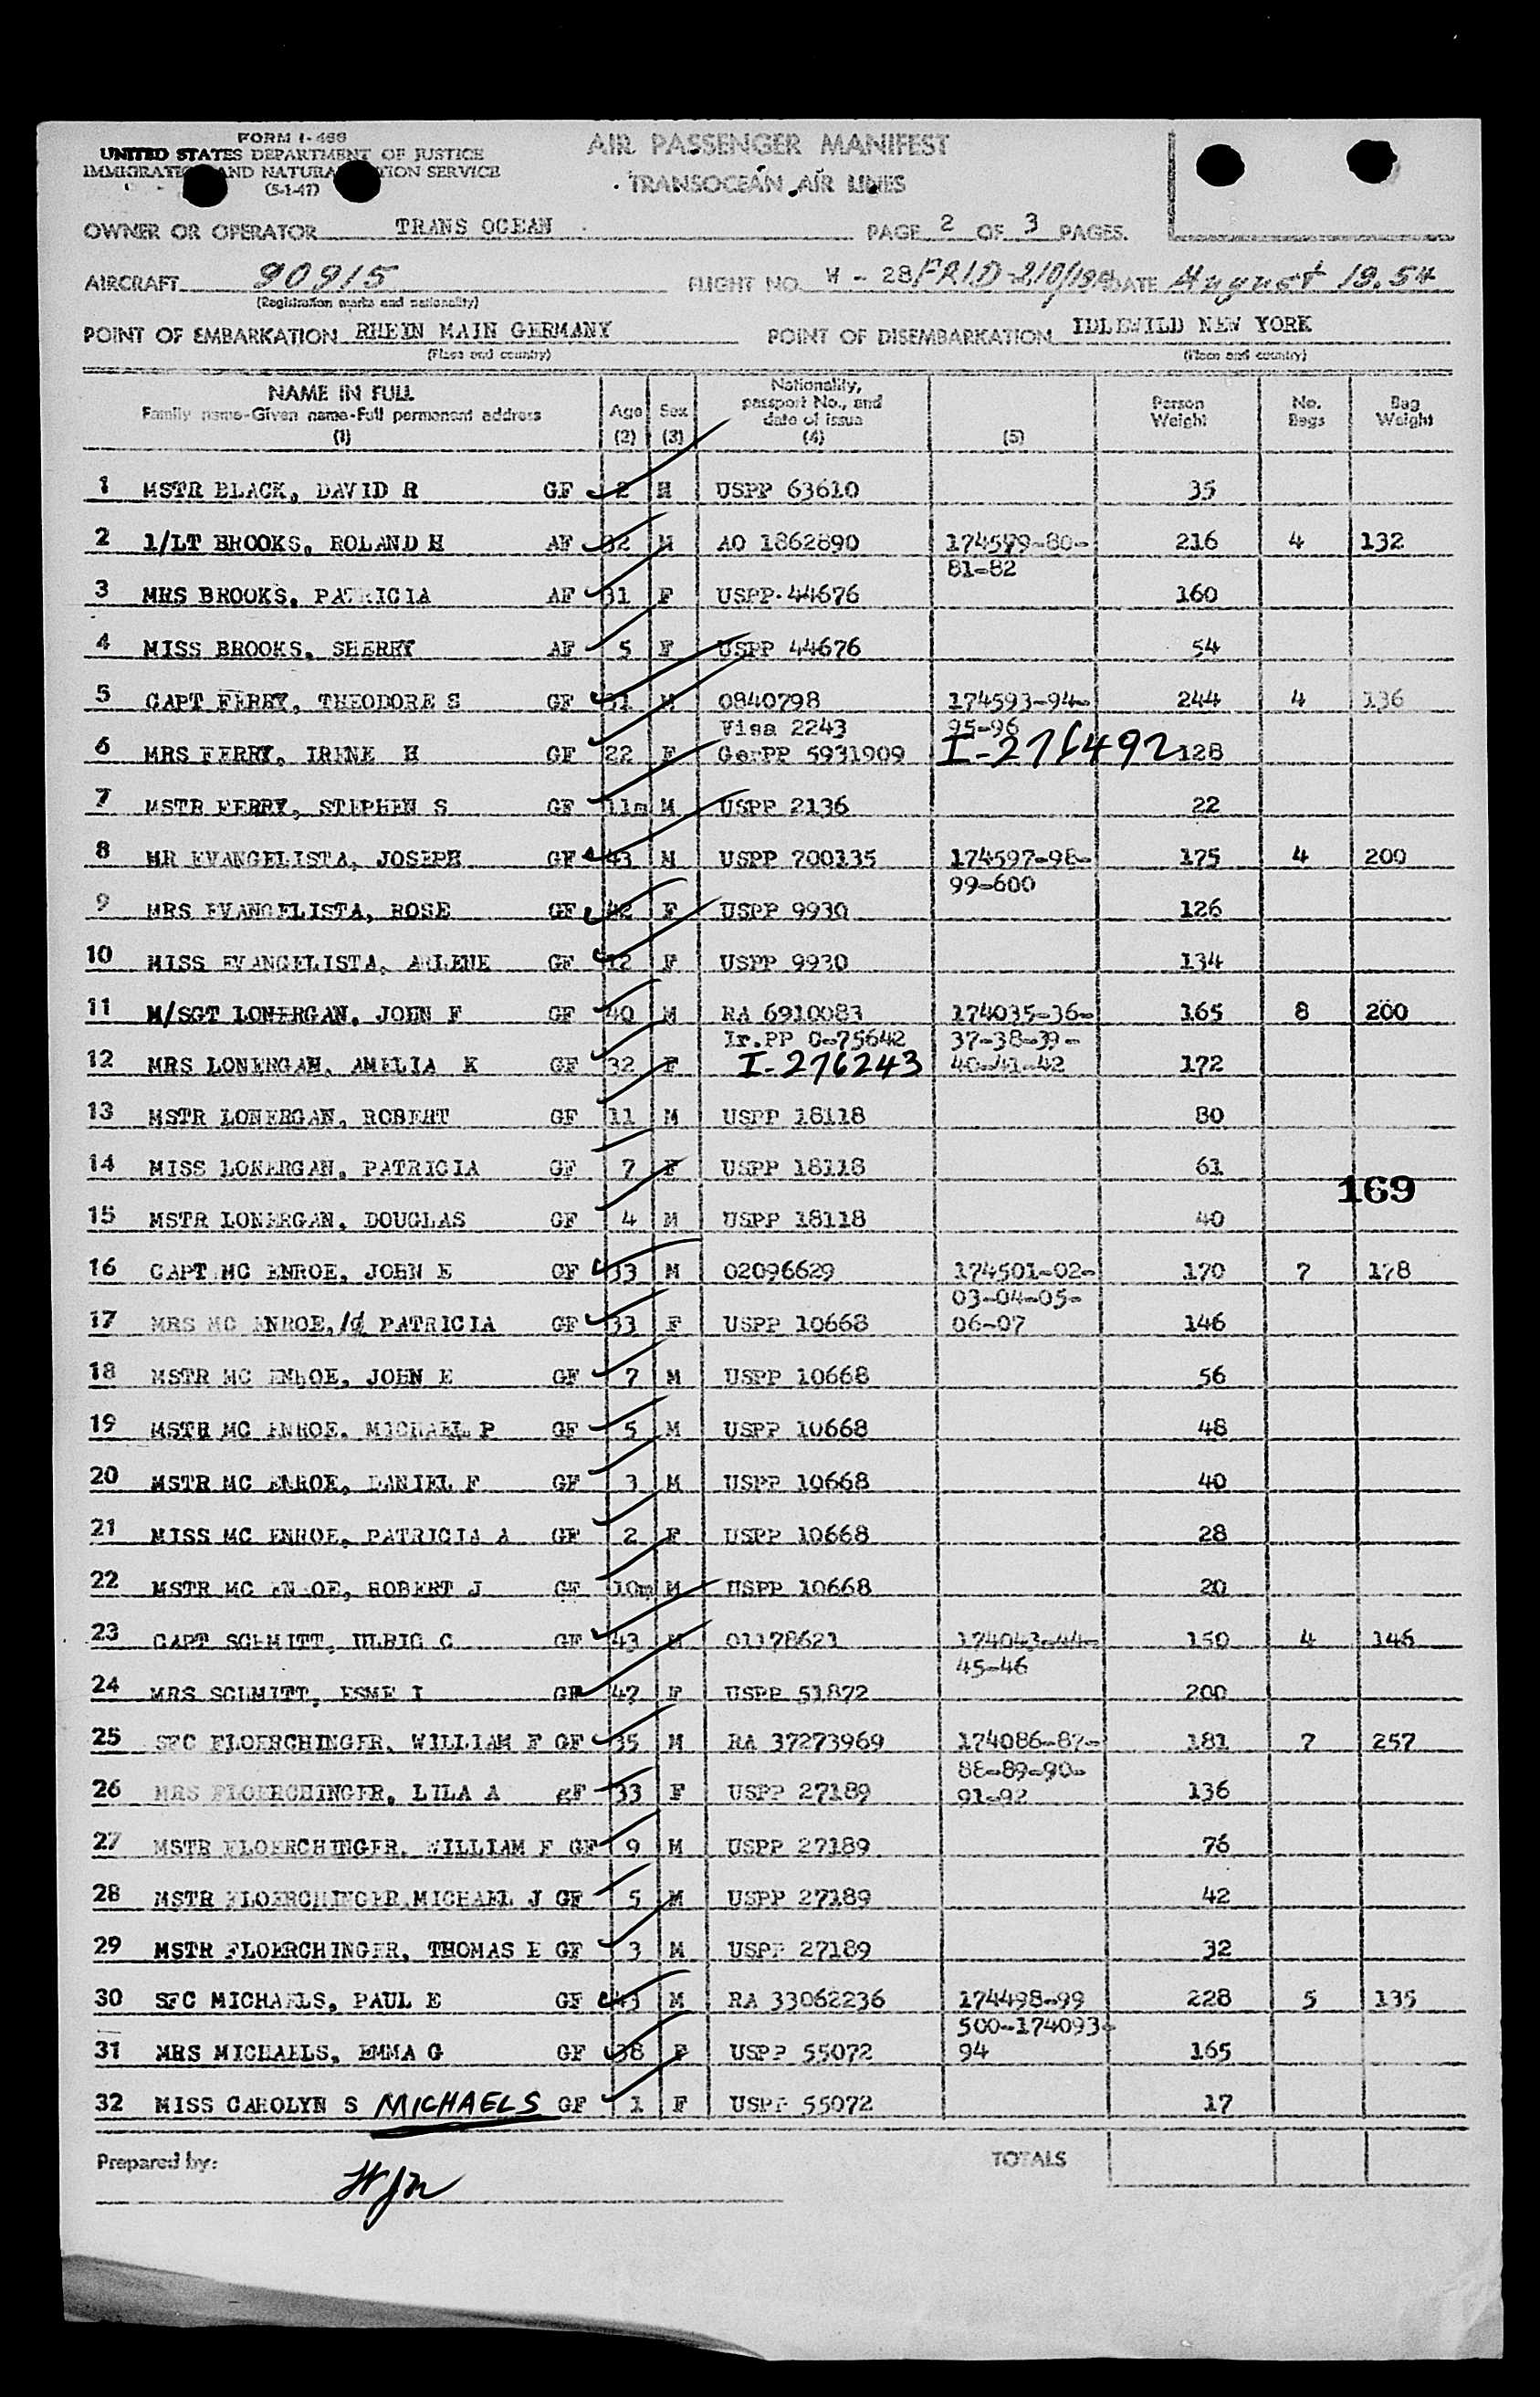 FORM I-466
UNITED STATES DEPARTMENT OF JUSTICE
IMMIGRATION AND NATURALIZATION SERVICE
(5-1-47)
AIR PASSENGER MANIFEST
TRANSOCEAN AIR LINES
OWNER OR OPERATOR TRANS OCEAN PAGE 2 OF 3 PAGES.
AIRCRAFT 90915 FLIGHT NO. W - 28/FRID- DATE August 19.54
(Registration marks and nationality)
POINT OF EMBARKATION RHEIN MAIN GERMANY POINT OF DISEMBARKATION IDLEWILD NEW YORK
(Place and country) (Place and country)
NAME IN FULL
Family name-Given name-Full permanent address
(1) Age (2) Sex (3) Nationality, passport No., and date of issue (4) (5) Person Weight No. Bags Bag Weight
1 MSTR BLACK, DAVID R GF 2 M USPP 63610 35
2 1/LT BROOKS, ROLAND H AF 32 M AO 1862890 174579-80- 216 4 132
81-82
3 MRS BROOKS, PATRICIA AF 31 F USPP 44676 160
4 MISS BROOKS, SHERRY AF 5 F USPP 44676 54
5 CAPT FERRY, THEODORE S GF 31 M 0840798 174593-94- 244 4 136
Visa 2243 95-96
6 MRS FERRY, IRENE H GF 22 F GerPP 5931909 I-276492 128
7 MSTR FERRY, STEPHEN S GF 11m M USPP 2136 22
8 MR EVANGELISTA, JOSEPH GF 43 M USPP 700135 174597-98- 175 4 200
99-600
9 MRS EVANGELISTA, ROSE GF 42 F USPP 9930 126
10 MISS EVANGELISTA, ARLENE GF 12 F USPP 9930 134
11 M/SGT LONERGAN, JOHN F GF 40 M RA 6910083 174035-36- 165 8 200
Ir.PP C-75642 37-38-39-
12 MRS LONERGAN, AMELIA K GF 32 F I-276243 40-41-42 172
13 MSTR LONERGAN, ROBERT GF 11 M USPP 18118 80
14 MISS LONERGAN, PATRICIA GF 7 F USPP 18118 61
169
15 MSTR LONERGAN, DOUGLAS GF 4 M USPP 18118 40
16 CAPT MC ENROE, JOHN E GF 33 M 02096629 174501-02- 170 7 178
03-04-05-
17 MRS MC ENROE, PATRICIA GF 33 F USPP 10668 06-07 146
18 MSTR MC ENROE, JOHN E GF 7 M USPP 10668 56
19 MSTR MC ENROE, MICHAEL P GF 5 M USPP 10668 48
20 MSTR MC ENROE, DANIEL F GF 3 M USPP 10668 40
21 MISS MC ENROE, PATRICIA A GF 2 F USPP 10668 28
22 MSTR MC ENROE, ROBERT J GF 10m M USPP 10668 20
23 CAPT SCHMITT, ULRIC C GF 43 M 01178621 174043-44- 150 4 146
45-46
24 MRS SCHMITT, ESME I GF 47 F USPP 51872 200
25 SFC FLOERCHINGER, WILLIAM F GF 35 M RA 37273969 174086-87- 181 7 257
88-89-90-
26 MRS FLOERCHINGER, LILA A gF 33 F USPP 27189 91-92 136
27 MSTR FLOERCHINGER, WILLIAM F GF 9 M USPP 27189 76
28 MSTR FLOERCHINGER, MICHAEL J GF 5 M USPP 27189 42
29 MSTR FLOERCHINGER, THOMAS E GF 3 M USPP 27189 32
30 SFC MICHAELS, PAUL E GF 43 M RA 33062236 174498-99 228 5 135
500-174093-
31 MRS MICHAELS, EMMA G GF 38 F USPP 55072 94 165
32 MISS CAROLYN S MICHAELS GF 1 F USPP 55072 17
Prepared by: TOTALS